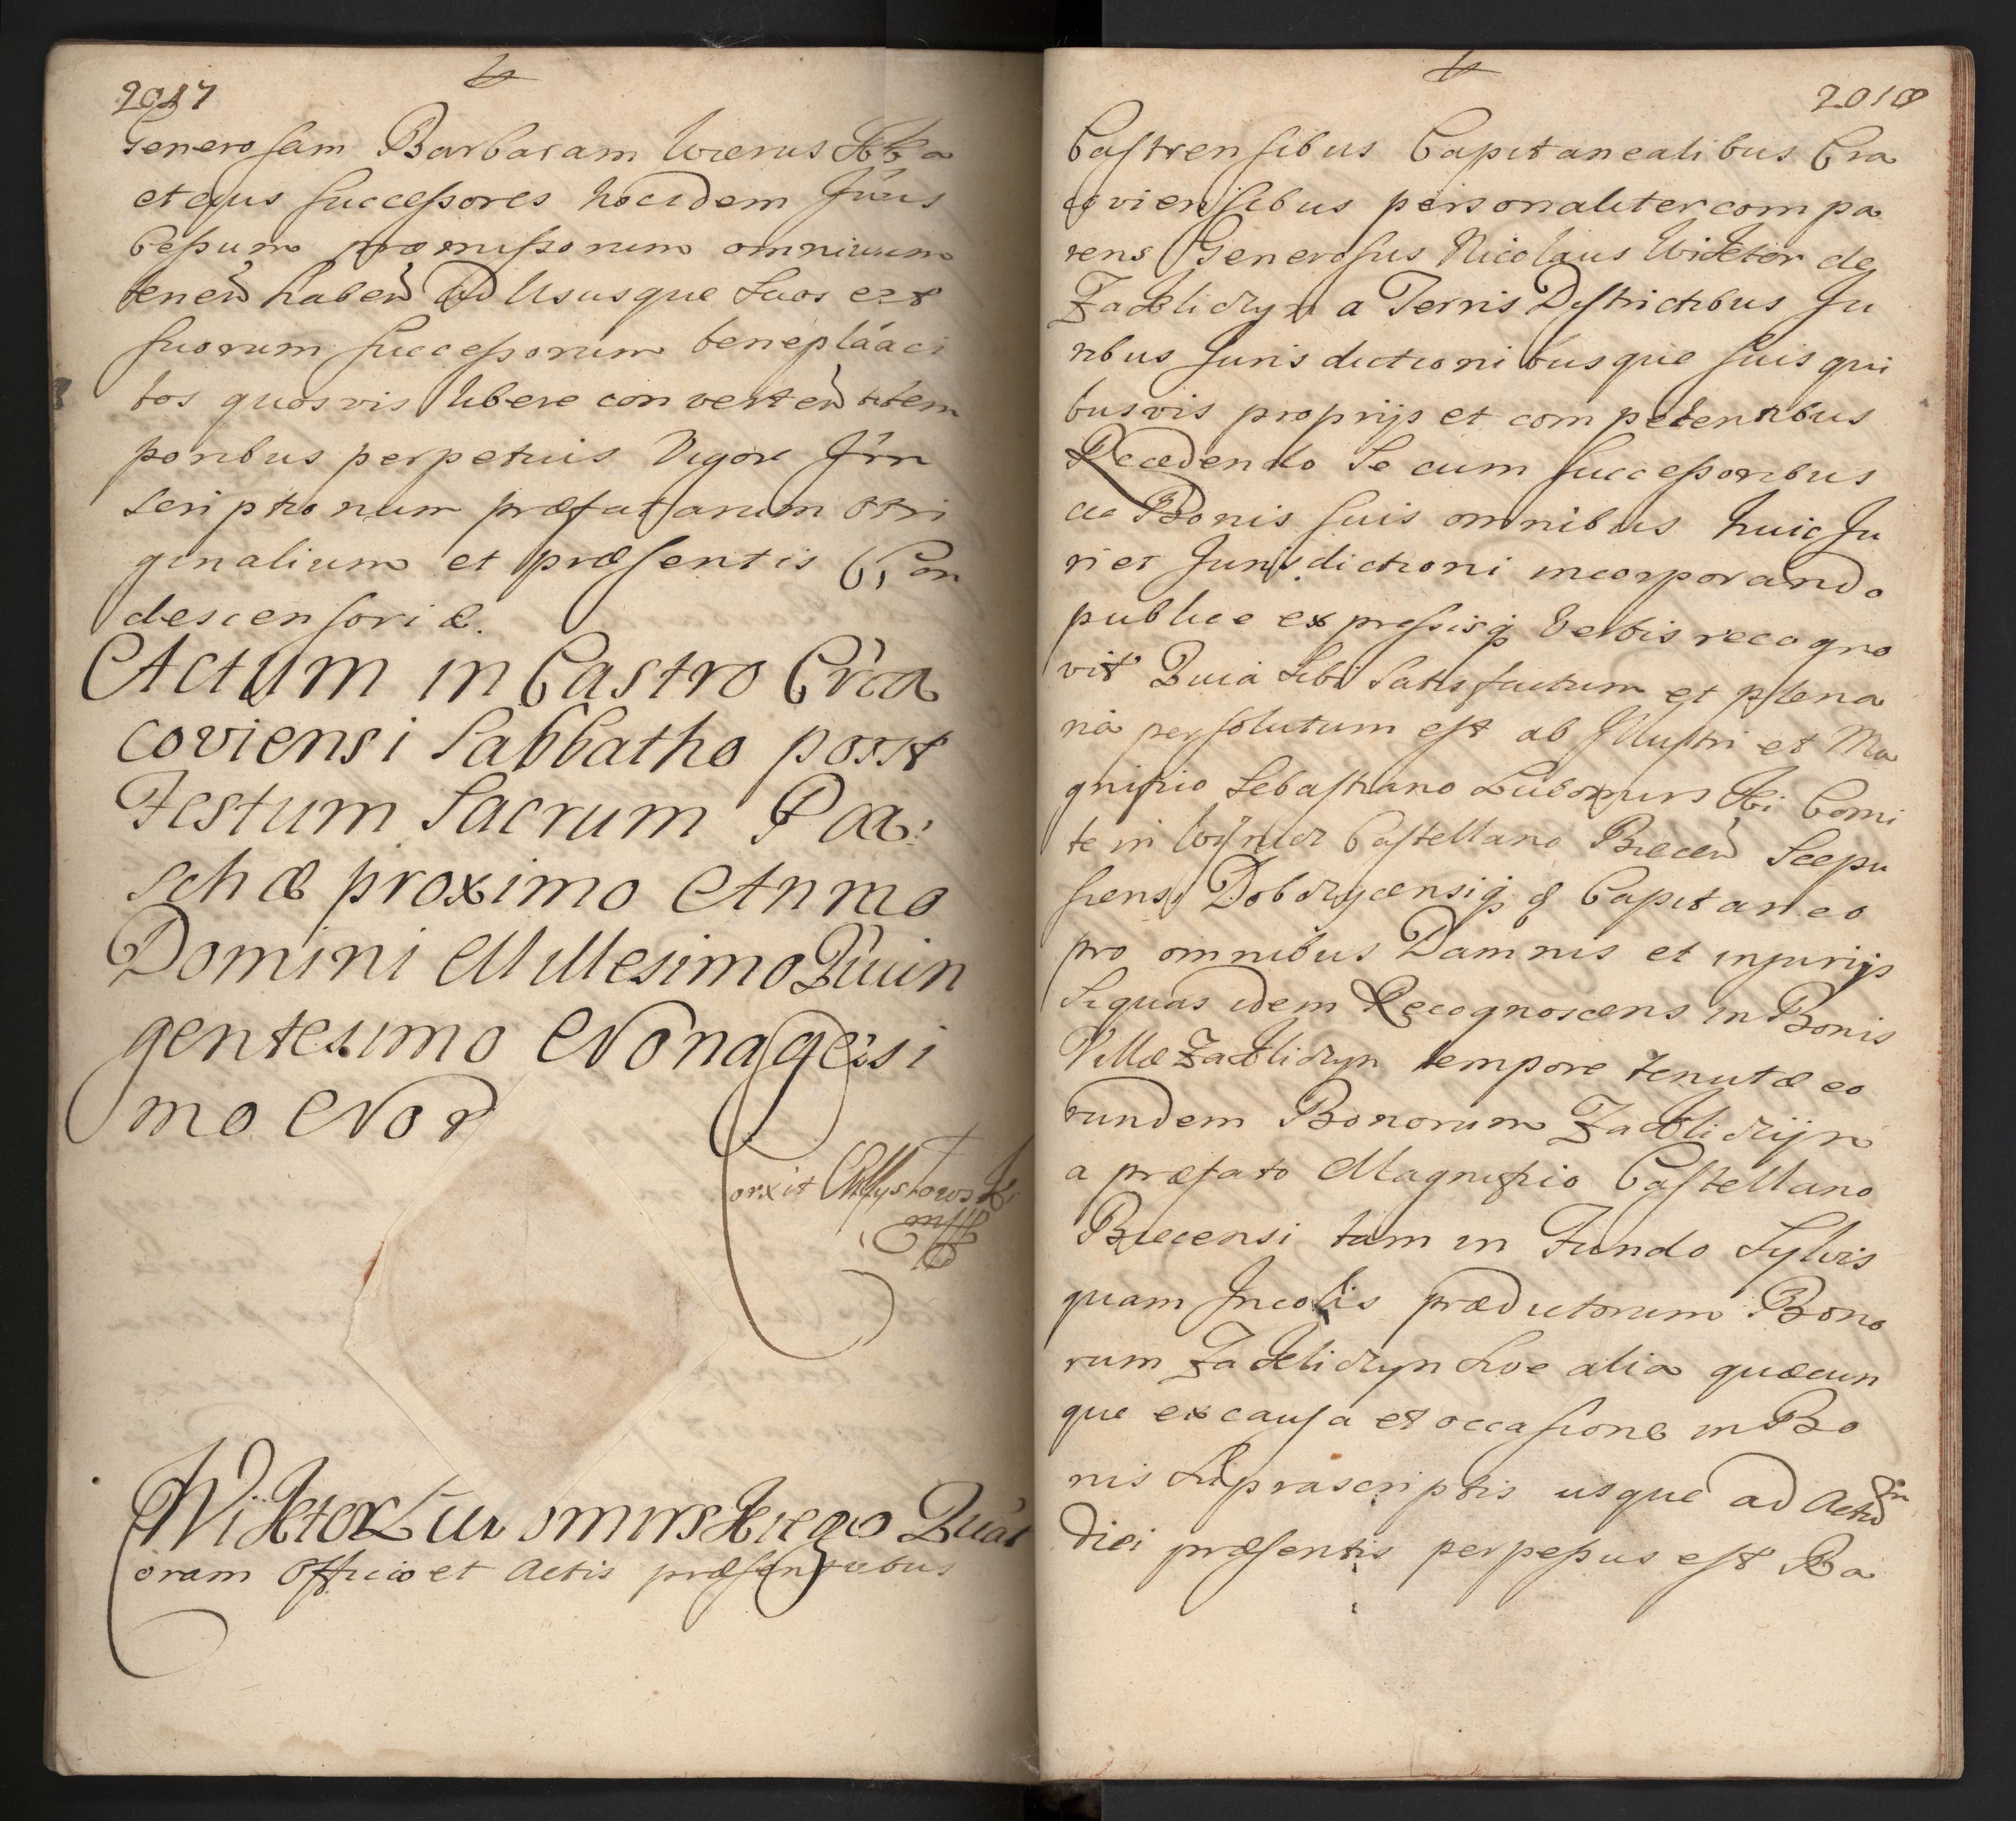 2017
Generosam Barbaram Wierusz Skka
et ejus successores hocidem Juris
Cessum præmissorum omnium
tenen haben ad Ususque suos et
suorum successorum beneplaaci
tos quosvis libere converten tem
poribus perpetuis Vigore Jn
scriptionum præfatarum ori
ginalium et præsentis Con
descensoriæ.
Actum in Castro Cra
coviensi Sabbatho post
Festum Sacrum Pa
schæ proximo Anno
Domini Millesimo Quin
gentesimo Nonagesi
mo Nor
Wiktor Lubomirskiego Quat
oram Officio et Actis præsentibus
2018
Castrensibus Capitanealibus Cra
coviensibus personaliter compa
rens Generosus Nicolaus Wiktor de
Zakliczyn a Terris Districtibus Ju
ribus Jurisdictionibusque suis qui
busvis proprijs et competentibus
Recedendo Se cum successoribus
ac Bonis suis omnibus huic Ju
ri et Jurisdictioni incorporando
publice expressisq Verbis recogno
vit Quia sibi satisfactum et plena
rià persolutum est ab Illustri et Ma
gnifico Sebastiano Lubomirski Comi
te in Wisnicz Castellano Biecen Scepu
siensi Dobczycensiq & Capitaneo
pro omnibus Damnis et injurijs
Siquas idem Recognoscens in Bonis
Villæ Zakliczyn tempore tenutæ eo
rundem Bonorum Zakliczyn
a præfato Magnifico Castellano
Biecensi tam in Fundo Sylvis
quam Incolis prædictorum Bono
rum Zakliczyn sive alia quæcun
que ex causa et occasione in Bo
nis suprascriptis usque ad Actum
diei præsentis perpessus est Ra